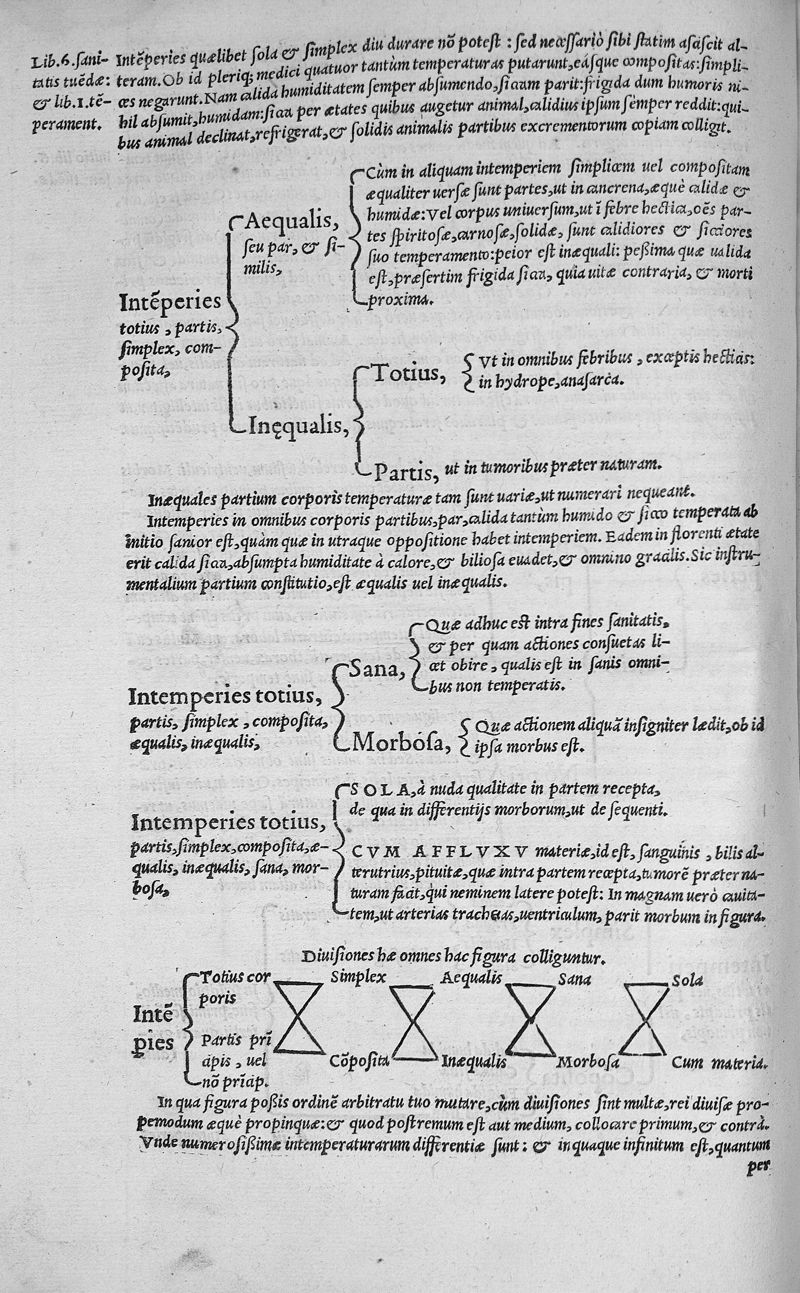 Lib. 6. sani-
tatis tuēdæ:
& lib. 1. tē-
perament.
Intēperies quælibet sola & simplex diu durare nō potest : sed necessariò sibi statim asciscit al-
teram. Ob id pleriq; medici quatuor tantùm temperaturas putarunt, eásque compositas: simpli-
ces negarunt. Nam calida humiditatem semper absumendo, siccam parit: frigida dum humoris ni-
hil absumit, humidam: sicca per ætates quibus augetur animal, calidius ipsum sèmper reddit: qui-
bus animal declinat, refrigerat, & solidis animalis partibus excrementorum copiam colligit.
Intēperies
totius , partis,
simplex, com-
posita,
Aequalis,
seu par, & si-
milis,
Cùm in aliquam intemperiem simplicem uel compositam
æqualiter uersæ sunt partes, ut in cancrena, æquè calidæ &
humidæ: Vel corpus uniuersum, ut ī febre hectica, oēs par-
tes spiritosæ, carnosæ, solidæ, sunt calidiores & sicciores
suo temperamento: peior est inæquali: peßima quæ ualida
est, præsertim frigida sicca, quia uitæ contraria, & morti
proxima.
Inęqualis,
Totius,
Vt in omnibus febribus , exceptis hecticis:
in hydrope, anasarca.
Partis, ut in tumoribus præter naturam.
Inæquales partium corporis temperaturæ tam sunt uariæ, ut numerari nequeant.
Intemperies in omnibus corporis partibus, par, calida tantùm humido & sicco temperata ab
initio sanior est, quàm quæ in utraque oppositione habet intemperiem. Eadem in florenti ætate
erit calida sicca, absumpta humiditate à calore, & biliosa euadet, & omnino gracilis. Sic instru-
mentalium partium constitutio, est æqualis uel inæqualis.
Intemperies totius,
partis, simplex , composita,
æqualis, inæqualis,
Sana,
Quæ adhuc est intra fines sanitatis,
& per quam actiones consuetas li-
cet obire , qualis est in sanis omni-
bus non temperatis.
Morbosa,
Quæ actionem aliquā insigniter lædit, ob id
ipsa morbus est.
Intemperies totius,
partis, simplex, composita, æ-
qualis, inæqualis, sana, mor-
bosa,
SOLA, à nuda qualitate in partem recepta,
de qua in differentijs morborum, ut de sequenti.
CVM AFFLVXV materiæ, id est, sanguinis , bilis al-
terutrius, pituitæ, quæ intra partem recepta, tumorē præter na-
turam facit, qui neminem latere potest: In magnam uerò cauita-
tem, ut arterias tracheas, uentriculum, parit morbum in figura.
Diuisiones hæ omnes hac figura colliguntur.
Intē
pies
Totius cor
poris
Simplex
Aequalis
Sana
Sola
Partis prī
cipis , uel
nō prīcip.
Cōposita
Inæqualis
Morbosa
Cum materia.
In qua figura poßis ordinē arbitratu tuo mutare, cùm diuisiones sint multæ, rei diuisæ pro-
pemodum æquè propinquæ: & quod postremum est aut medium, collocare primum, & contrà.
Vnde numerosißimæ intemperaturarum differentiæ sunt: & in quaque infinitum est, quantum
per